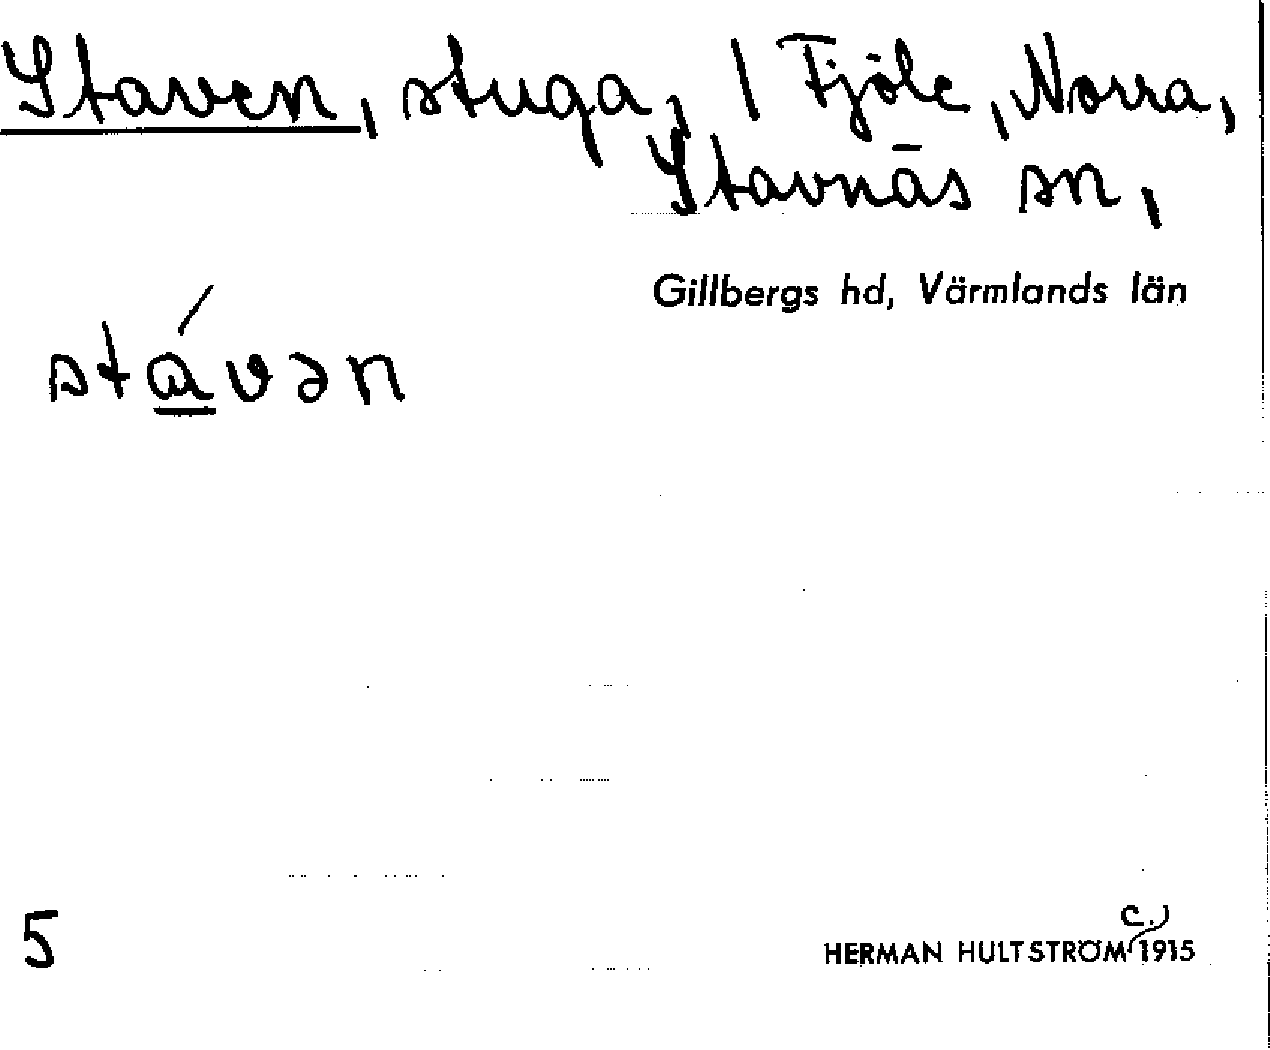 Staven, stuga, 1 Fjöle, Norra,
Stavnäs sn,
Gillbergs hd, Värmlands län
stávən
5
c.
HERMAN HULTSTRÖM 1915